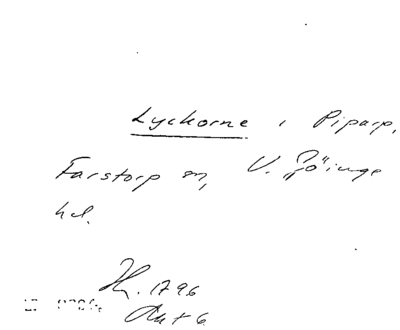 Lyckorne i Piparp,
Farstorp sn, V. Göinge
hd.
H. 1796
Akt 6